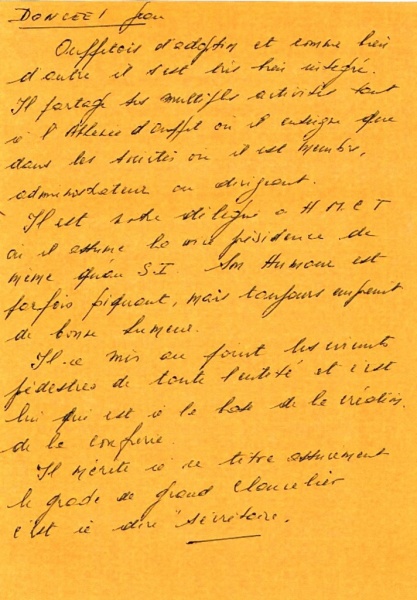 DONCEEL Jean
Ouffetois d'adoption et comme bien
d'autre il s'est très bien intégré.
Il partage ses multiples activités tant
à l'Athénée d'Ouffet où il enseigne que
dans les sociétés où il est membre,
administrateur ou dirigeant.
Il est notre délégué à H M C T
où il assume la vice présidence de
même qu'au S.I. Son Humour est
parfois piquant, mais toujours empreint
de bonne humeur.
Il a mis au point les circuits
pédestres de toute l'entité et c'est
lui qui est à la base de la création
de la confrérie.
Il mérite à ce titre assurément
le grade de grand Chancelier
c'est à dire "Sécrétaire.